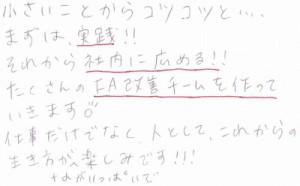 小さいことからコツコツと…
まずは、実践!!
それから社内に広める!!
たくさんのFA改善チームを作って
いきます。
仕事だけでなく、人として、これからの
生き方が楽しみです!!!